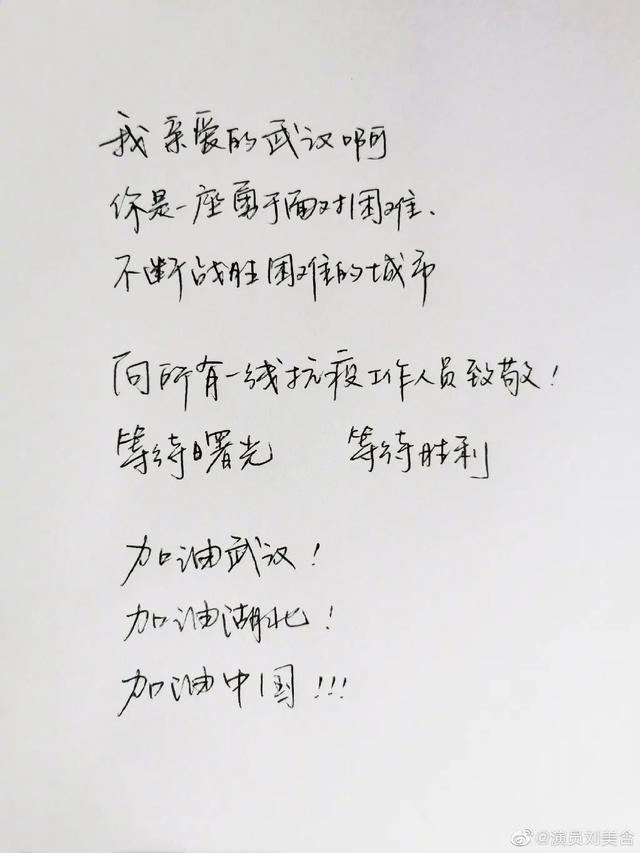 我亲爱的武汉啊
你是一座勇于面对困难、
不断战胜困难的城市
向所有一线抗疫工作人员致敬！
等待曙光 等待胜利
加油武汉！
加油湖北！
加油中国！！！
@演员刘美含